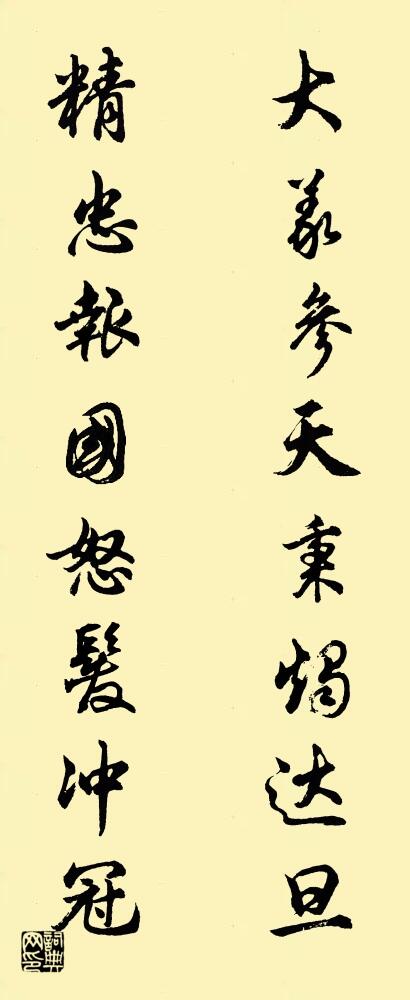 大義參天秉燭达旦
精忠報國怒髮冲冠
詞典网印